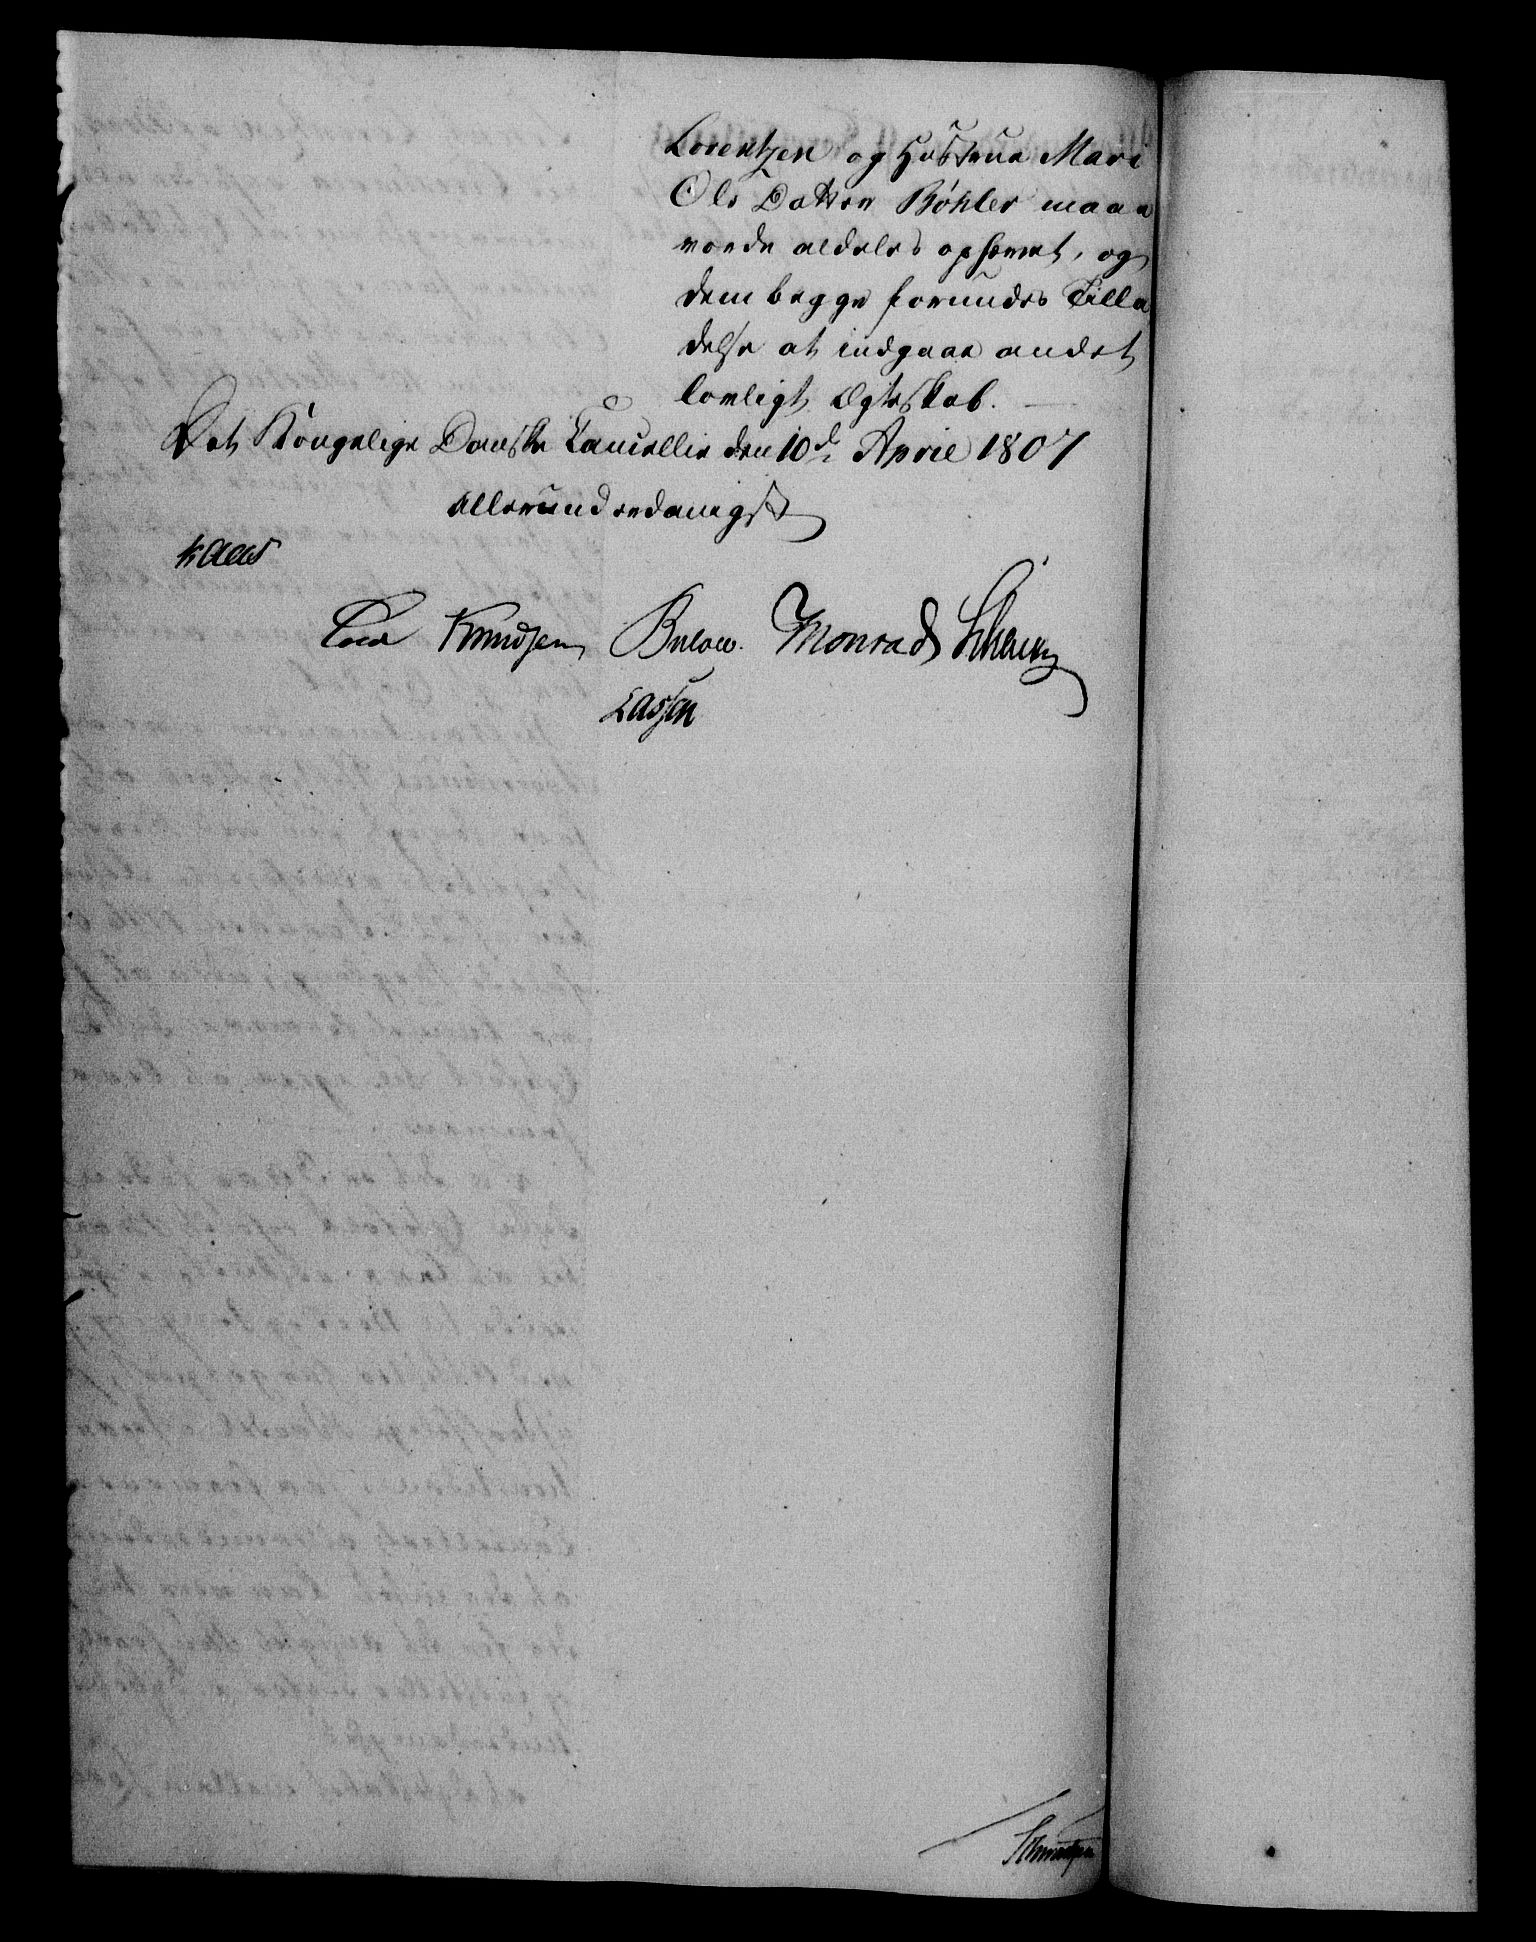 Lorentzen og Hustrue Mari
Ols Datter Böhler maae
vorde aldeles ophævet, og
dem begge forundes Tilla
delse at indgaae andet
lovligt Ægteskab.
Det Kongelige Danske Cancellie den 10d April 1807
allerunderdanigst
Kaas
Cold Knudsen Bülow. Monrad
Lassen